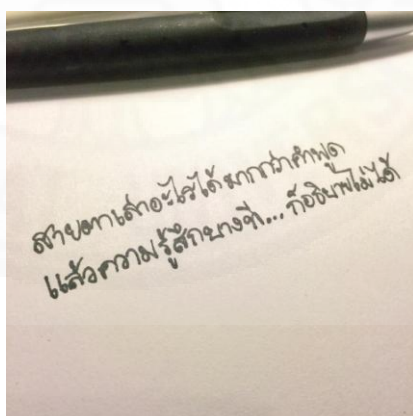 สายตาเล่าอะไรได้มากกว่าคำพูด
แล้วความรู้สึกบางที... ก็อธิบายไม่ได้